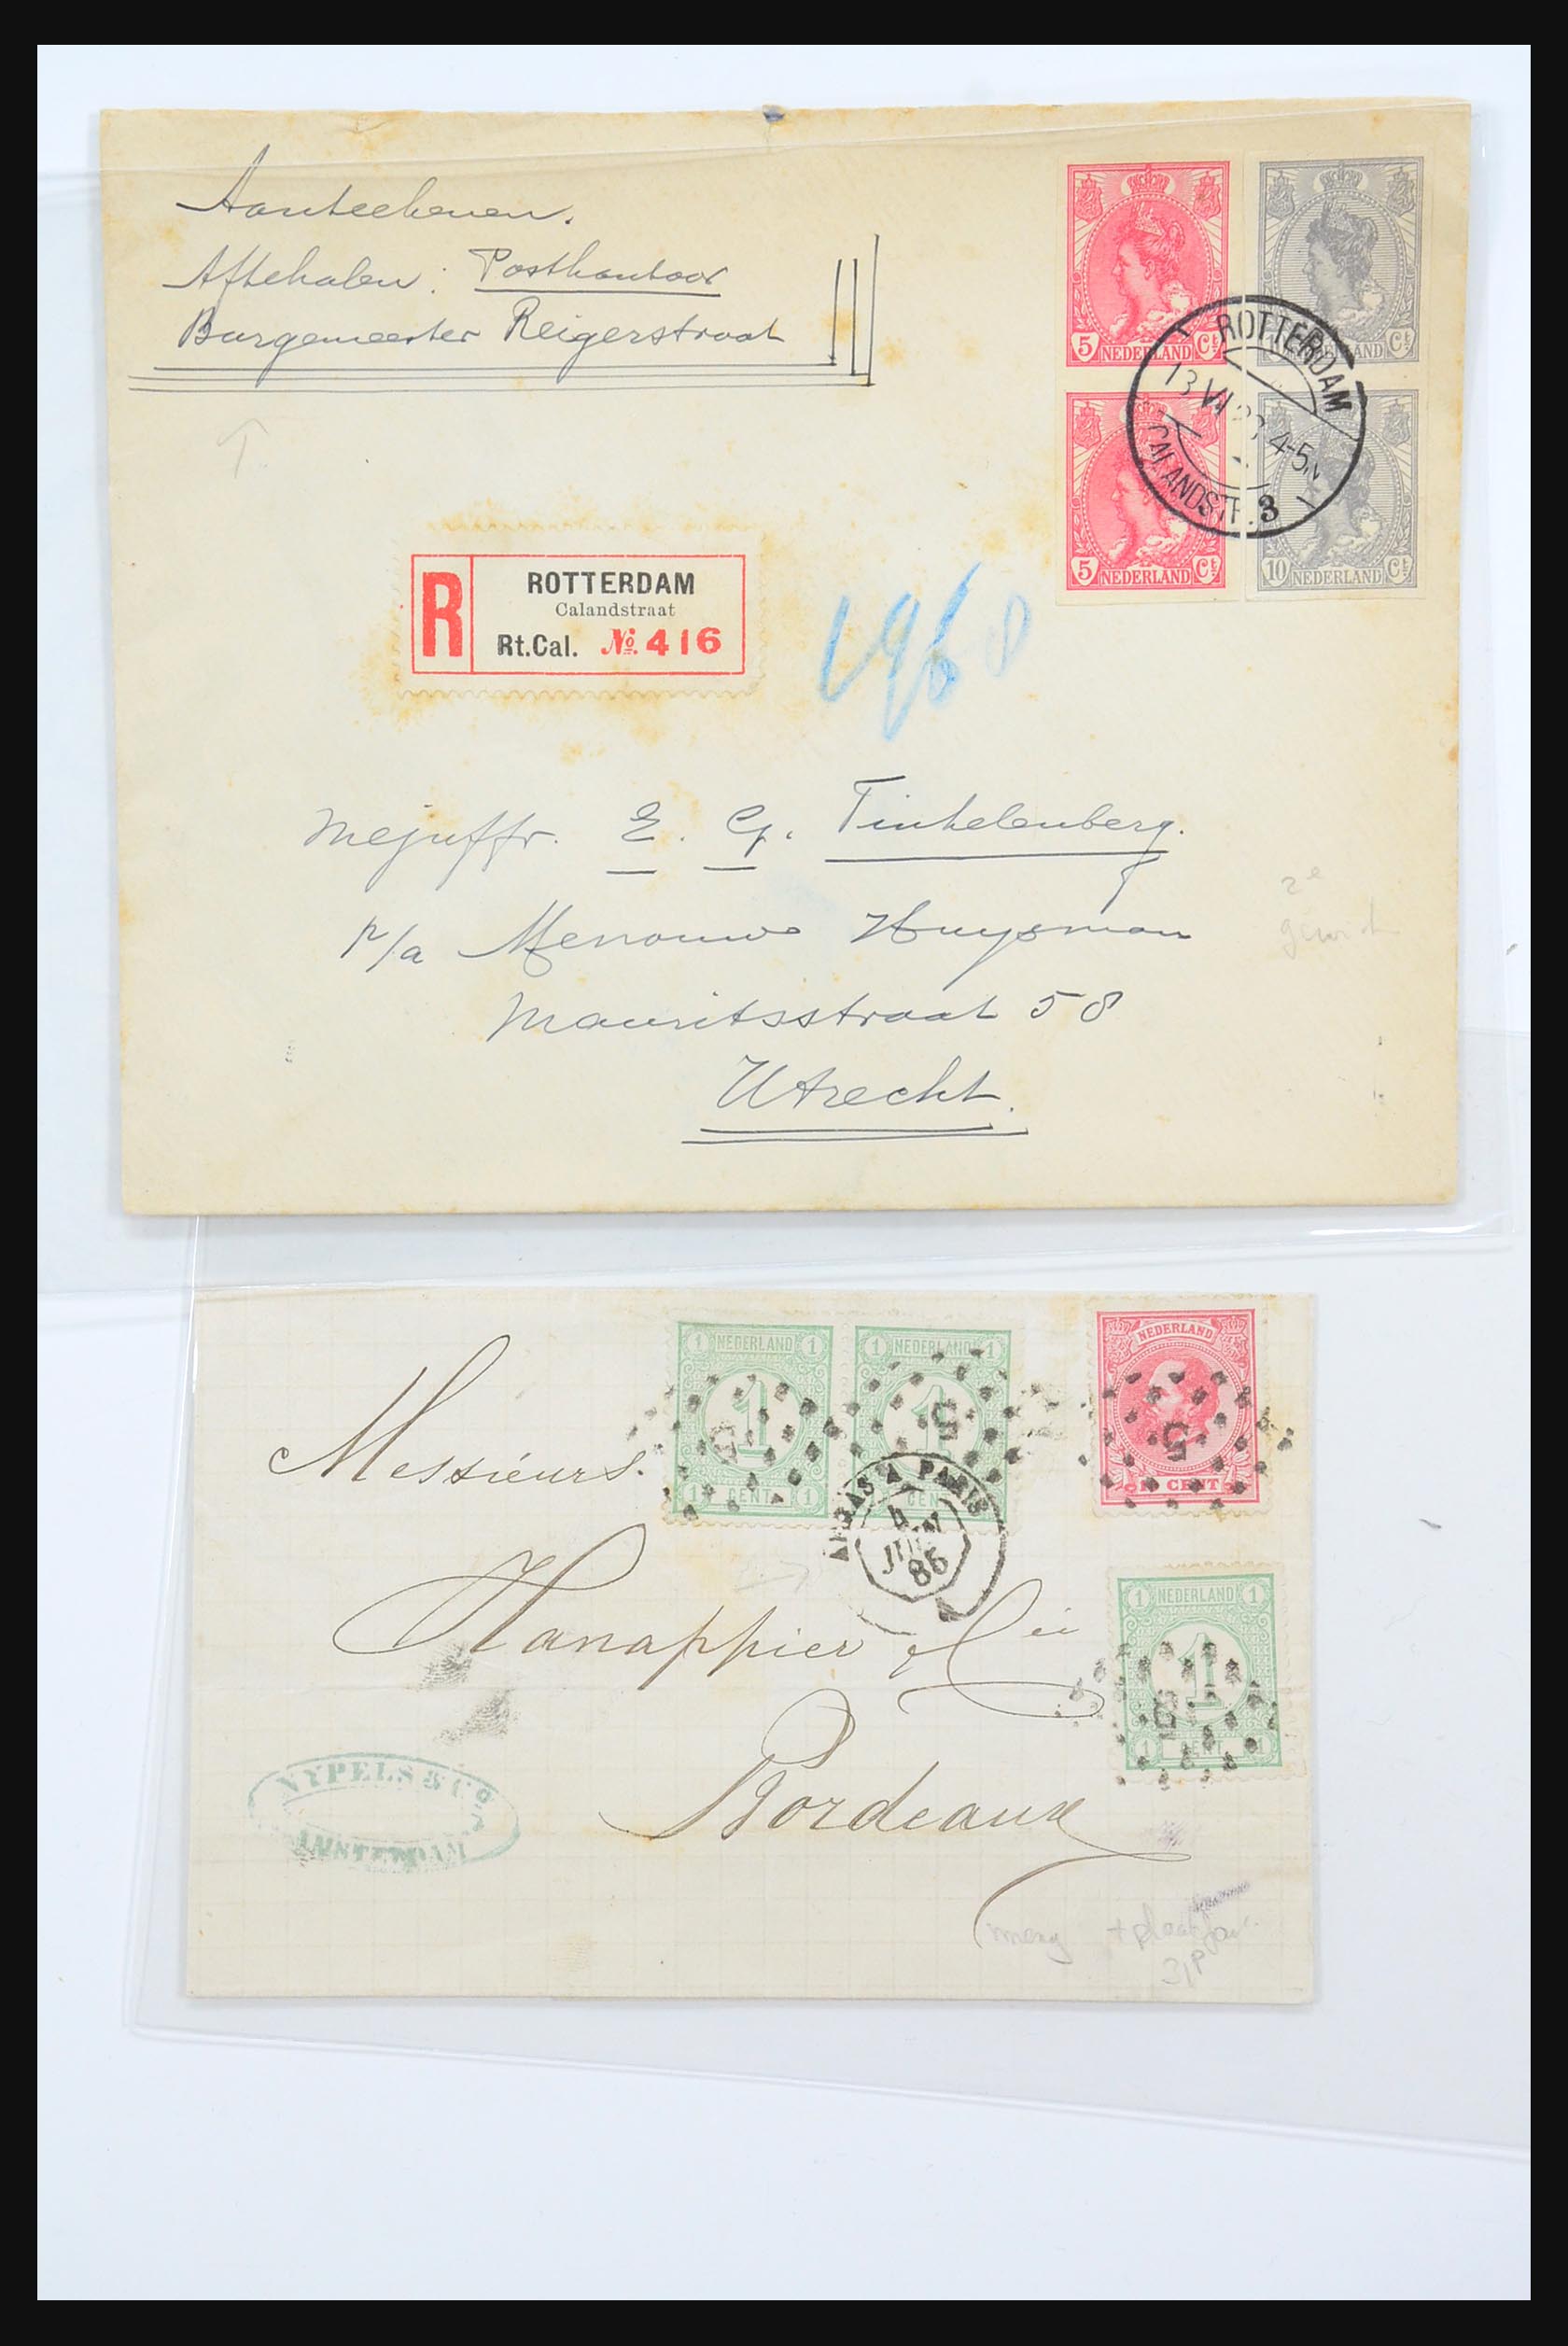 Aanteekenen.
Aftehalen: Postkantoor
Burgemeester Reigerstraat
5 NEDERLAND Ct
NEDERLAND Ct
5 NEDERLAND Ct
10 NEDERLAND Ct
ROTTERDAM
13 VI 4-5N
CALANDSTR. 3
T.
R
ROTTERDAM
Calandstraat
Rt.Cal. No. 416
Mejuffr. E. G. Tinkelenberg.
p/a Mevrouw Huysman
Mauritsstraat 58
Utrecht.
2e
1 NEDERLAND 1
1
1 CENT 1
1 NEDERLAND 1
1
CENT
NEDERLAND
CENT
5
5
ARRAS A PARIS
4
JUIN
86
Messieurs.
Hanappier & Cie
Bordeaux
1 NEDERLAND 1
1
1 CENT 1
NYPELS & Co
AMSTERDAM
meng
31P